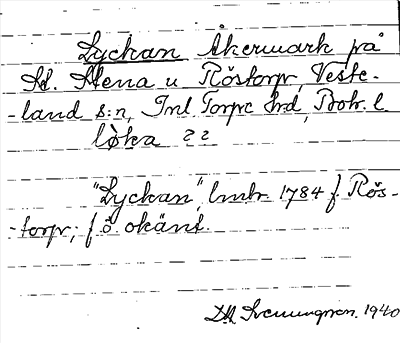 Lyckan Åkermark på
St. Stena u Röstorp, Veste-
-land s:n, Inl. Torpe hrd, Boh. l.
löka ??
"Lyckan", lmtr. 1784 f. Rös-
-torp; f. ö. okänt.
1940